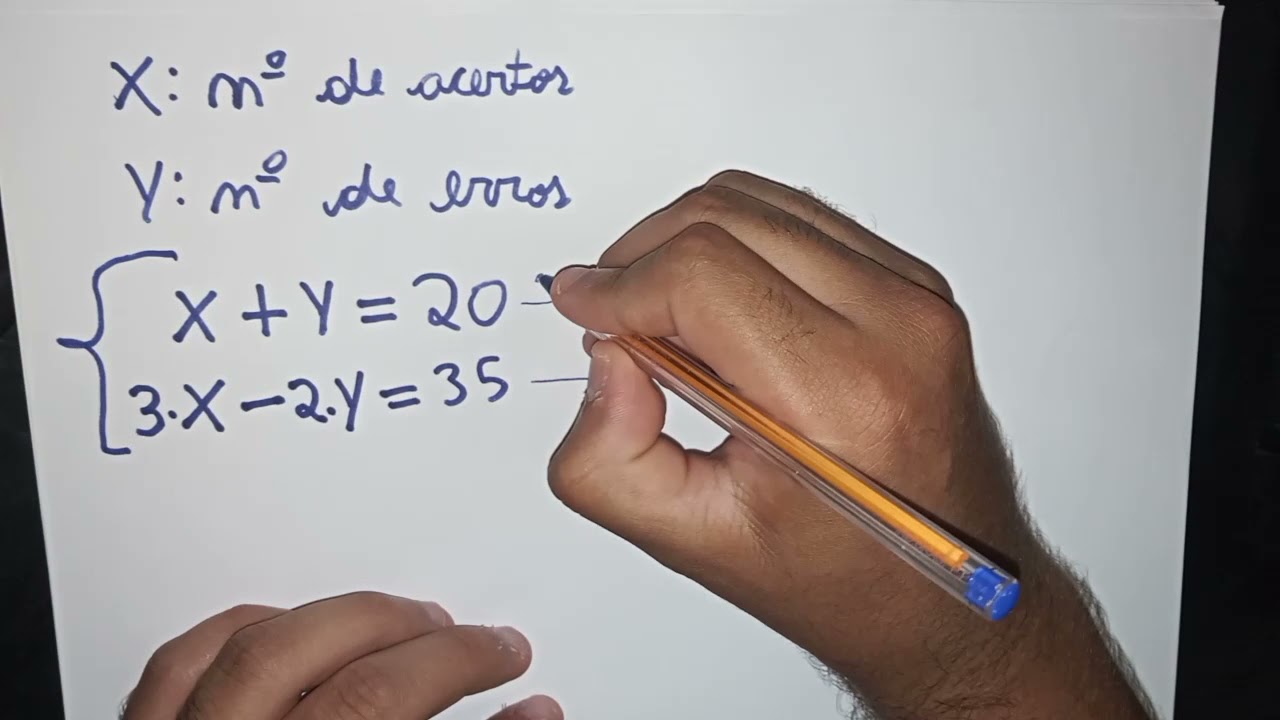 X: nº de acertos
Y: nº de erros
X + Y = 20
3.X - 2.Y = 35